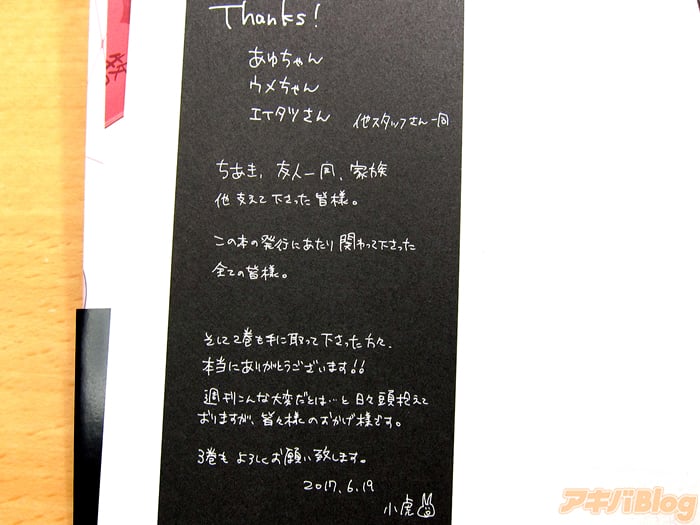 Thanks!
あゆちゃん
ウメちゃん
エイタツさん 他スタッフさん一同
ちあき、友人一同、家族
他支えて下さった皆様。
この本の発行にあたり関わって下さった
全ての皆様。
そして2巻も手に取って下さった方々、
本当にありがとうございます!!
週刊こんな大変だとは…と日々頭抱えて
おりますが、皆々様のおかげ様です。
3巻もよろしくお願い致します。
2017.6.19
小虎
アキバBlog